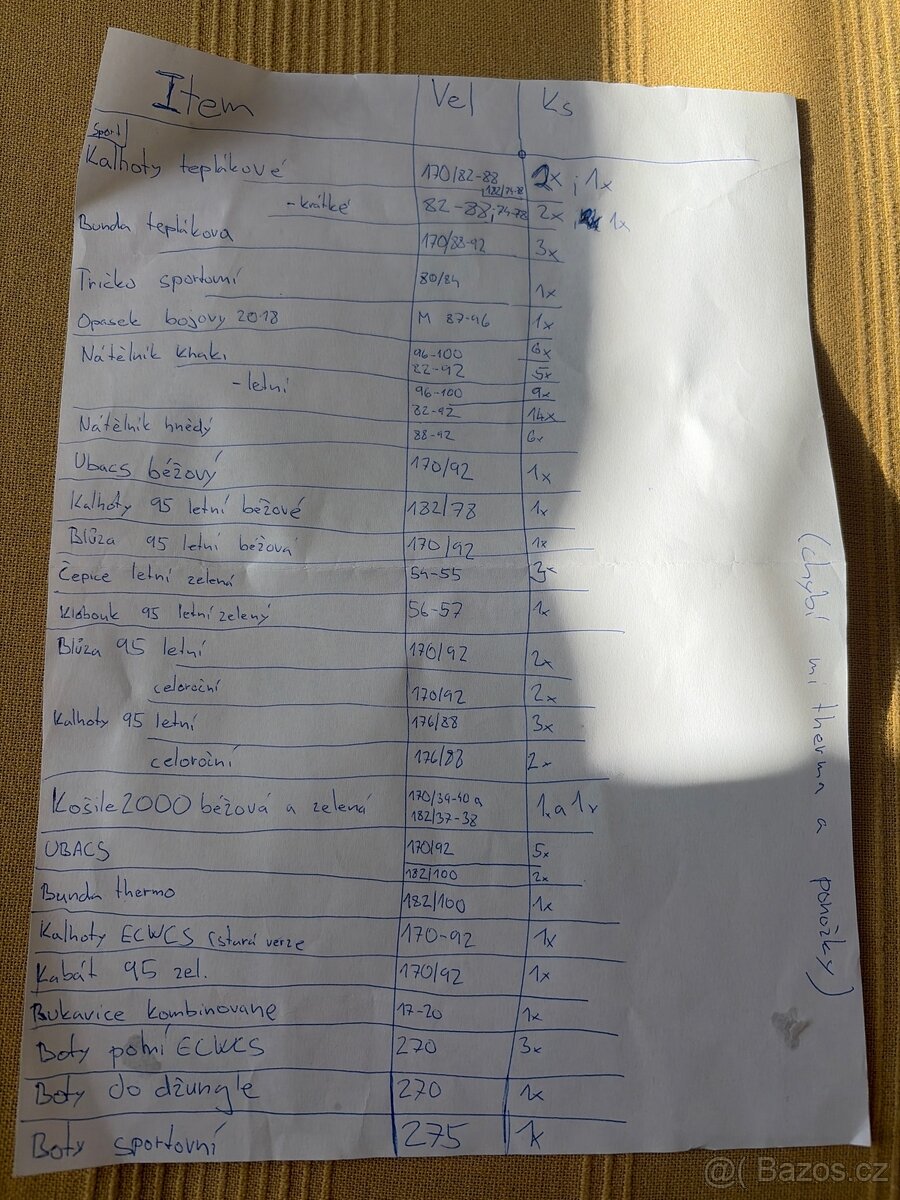 Item Vel Ks
sport
Kalhoty teplákové 170/82-88 2x ; 1x
182/74-78
- krátké 82-88;74-78 2x 1x
Bunda teplákova 170/88-92 3x
Tričko sportovní 80/84 1x
Opasek bojovy 2018 M 87-96 1x
Nátělník khaki 96-100 6x
82-92 5x
- letní 96-100 9x
82-92 14x
Nátělník hnědý 88-92 6x
Ubacs béžový 170/92 1x
Kalhoty 95 letní béžové 182/78 1x
Blůza 95 letní béžová 170/92 1x
Čepice letní zelená 54-55
Klobouk 95 letní zelený 56-57 1x
Blůza 95 letní 170/92 2x
celoroční 170/92 2x
Kalhoty 95 letní 176/88 3x
celoroční 176/88 2x
Košile 2000 béžová a zelená 170/39-40 a 1x a 1x
182/37-38
UBACS 170/92 5x
182/100 2x
Bunda thermo 182/100 1x
Kalhoty ECWCS (stará verze 170-92 1x
Kabát 95 zel. 170/92 1x
Rukavice kombinované 17-20 1x
Boty polní ECWCS 270 3x
Boty do džungle 270 1x
Boty sportovní 275 1x
(chybí mi therma a ponožky)
@( Bazos.cz